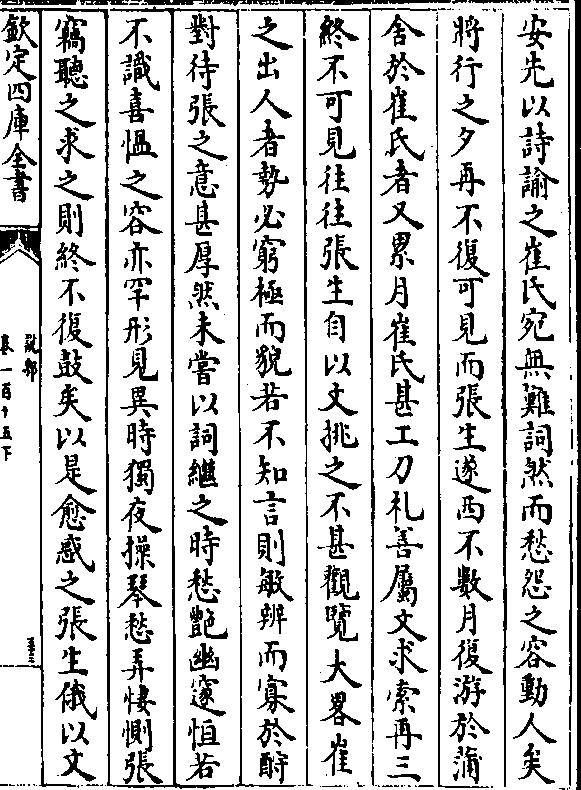 安先以詩諭之崔氏宛無難詞然而愁怨之容動人矣
將行之夕再不復可見而張生遂西不數月復游於蒲
舍於崔氏者又累月崔氏甚工刀札善屬文求索再三
終不可見往往張生自以文挑之不甚觀覽大畧崔
之出人者勢必窮極而貌若不知言則敏辨而寡於酧
對待張之意甚厚然未嘗以詞繼之時愁艶幽邃恒若
不識喜慍之容亦罕形見異時獨夜操琴愁弄悽惻張
竊聽之求之則終不復鼓矣以是愈惑之張生俄以文
欽定四庫全書
說郛
卷一百十五下